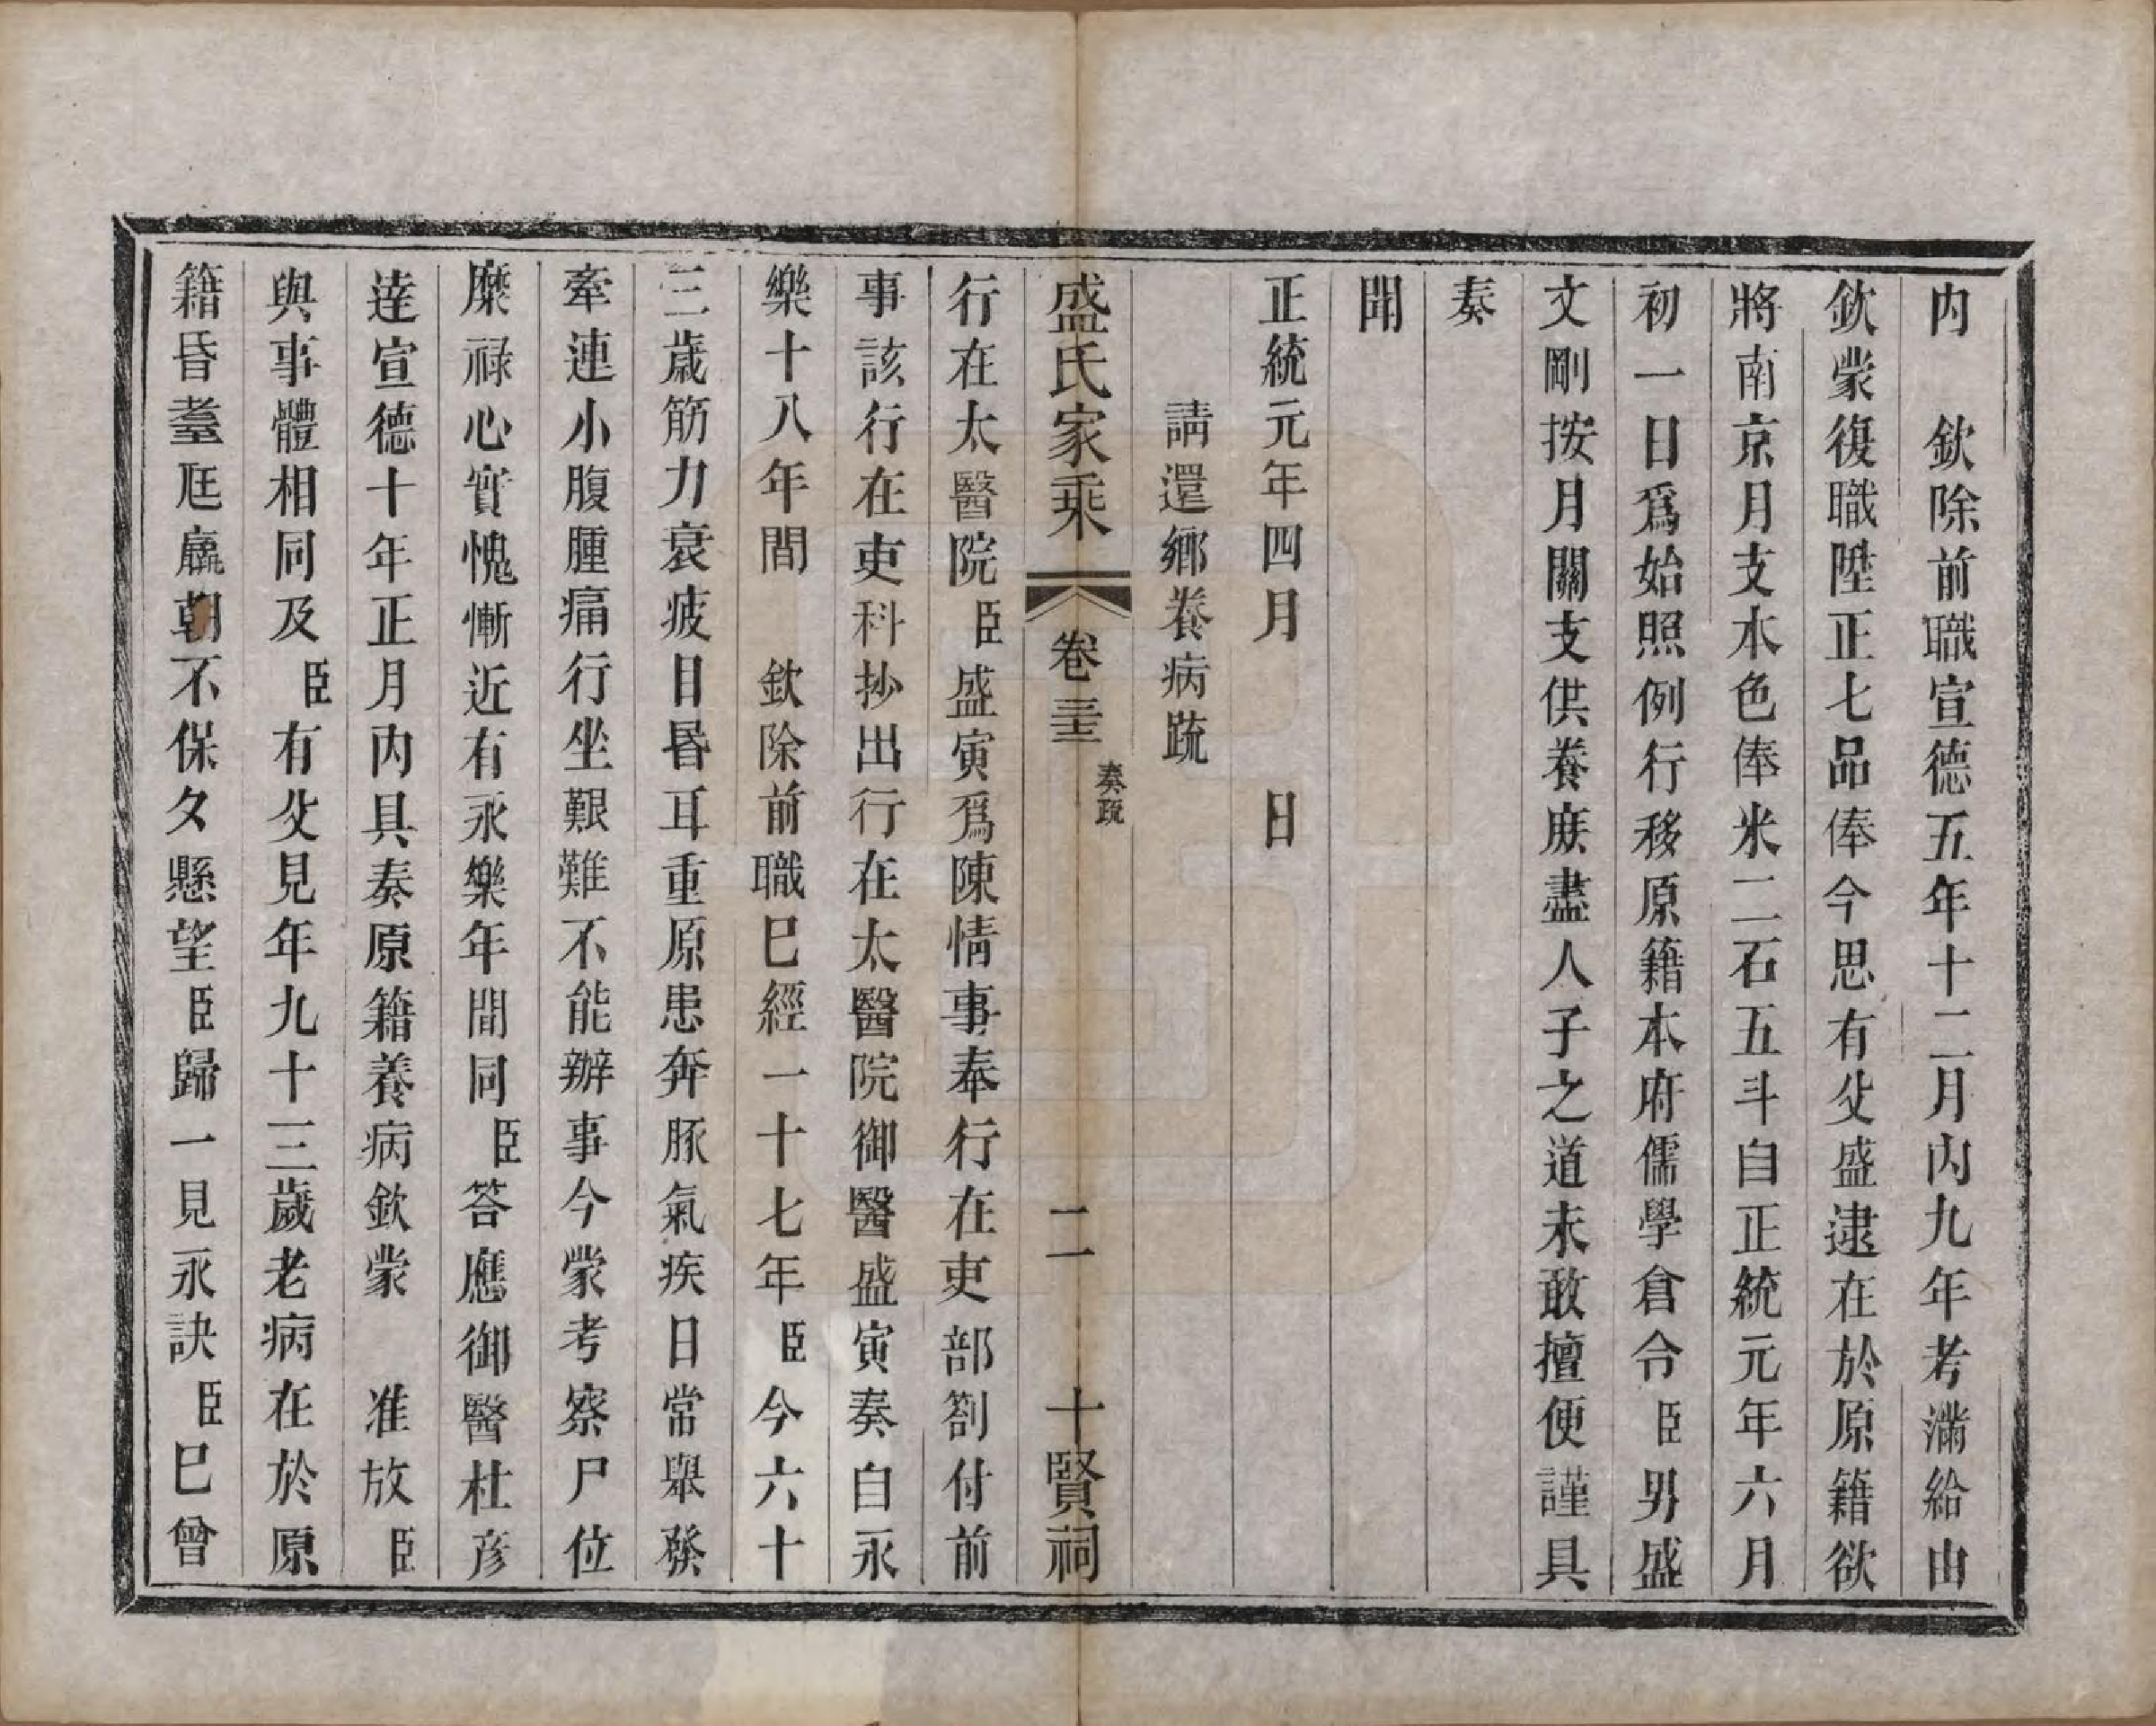 内　欽除前職宣德五年十二月內九年考滿給由
欽蒙復職陞正七品俸今思有父盛逮在於原籍欲
將南京月支本色俸米二石五斗自正統元年六月
初一日爲始照例行移原籍本府儒學倉令臣男盛
文剛按月關支供養庶盡人子之道未敢擅便謹具
奏
聞
正統元年四月　　日
請還鄉養病疏
盛氏家乘　卷三十三　奏疏　二　十賢祠
行在太醫院臣盛寅爲陳情事奉行在吏部劄付前
事該行在吏科抄出行在太醫院御醫盛寅奏自永
樂十八年間　欽除前職巳經一十七年臣今六十
三歲筋力衰疲目昬耳重原患奔豚氣疾日常舉發
牽連小腹腫痛行坐艱難不能辦事今蒙考察尸位
糜祿心實愧慚近有永樂年間同臣答應御醫杜彥
達宣德十年正月內具奏原籍養病欽蒙　准放臣
與事體相同及臣有父見年九十三歲老病在於原
籍昏耋尫羸朝不保夕懸望臣歸一見永訣臣巳曾